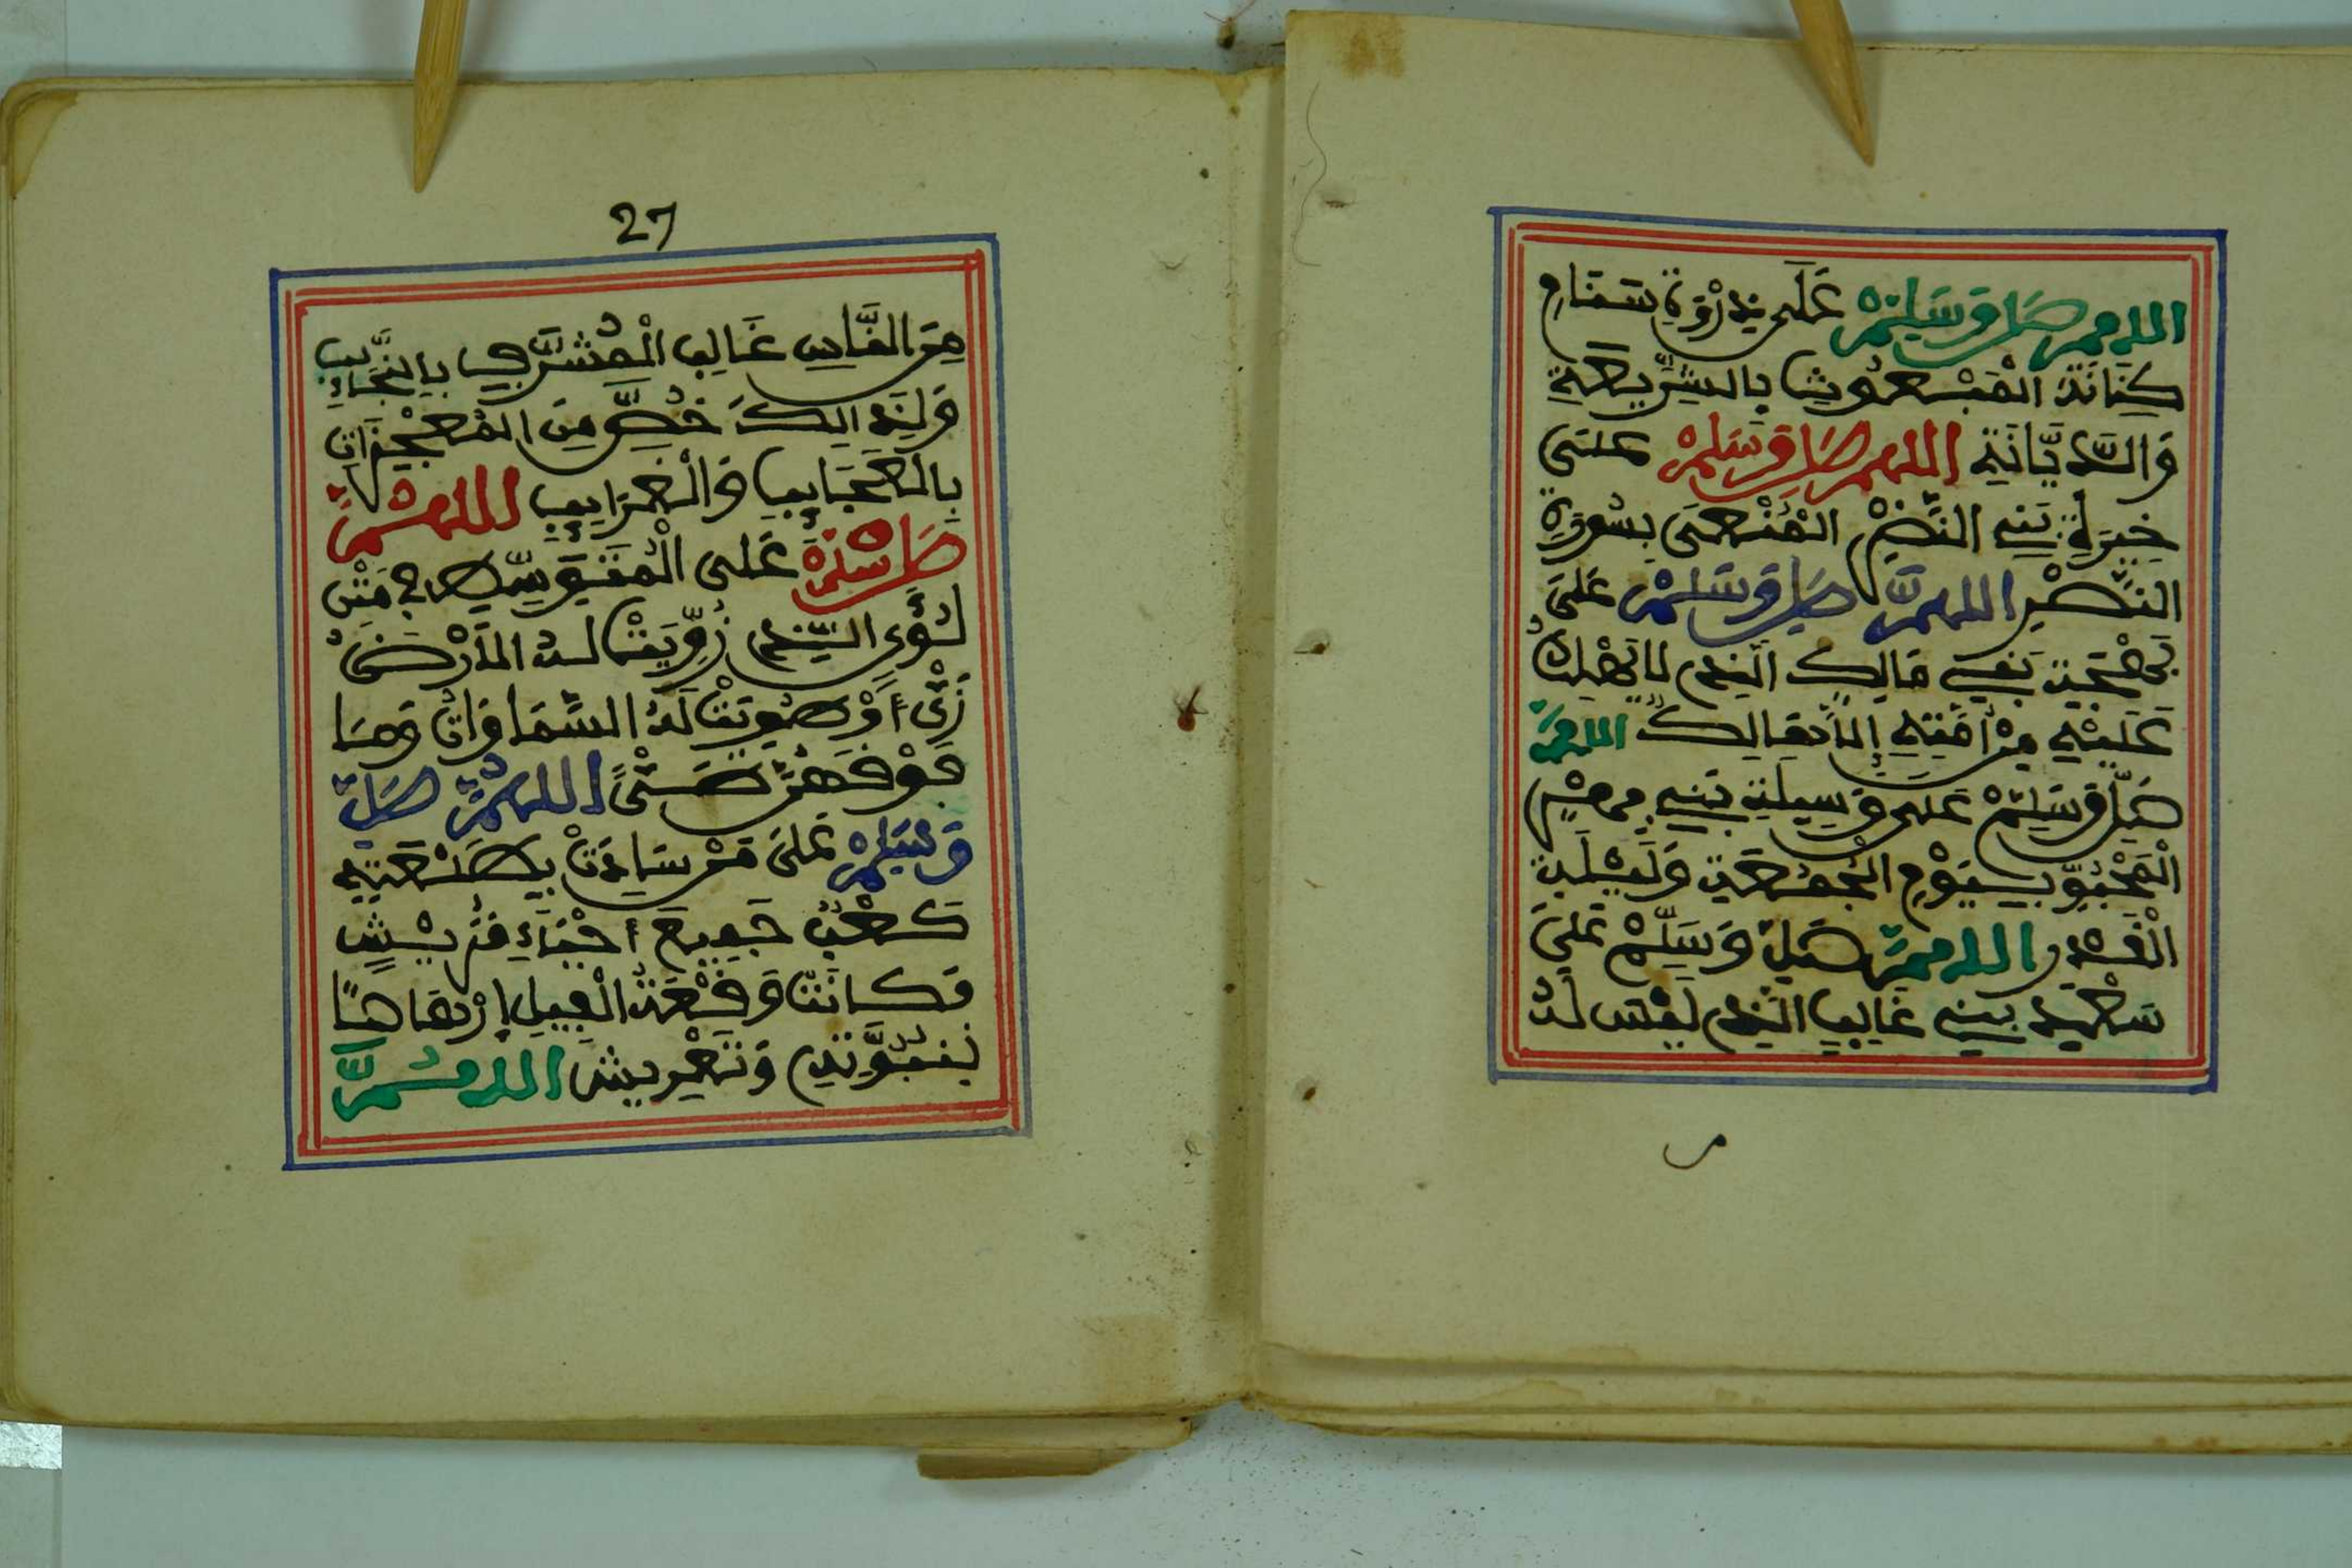 اللهم صل وسلم على ذروة سنام
كنانة المبعوث بالشريعة
والديانة اللهم صل وسلم على
خيرة بني النضر المنعى بسورة
النصر اللهم صل وسلم على
بهجة بني مالك الذي لا يهلك
عليه من أمته إلا هالك اللهم
صل وسلم على وسيلة بني فهر
المحبو بيوم الجمعة وليلة
القدر اللهم صل وسلم على
سعيد بني غالب الذي ليس له
27
من الناس غالب المشرف بالنجائب
ولذالك خص من المعجزات
بالعجايب والغرايب اللهم
صل وسلم على المتوسط في متن
لؤي الذي زويت له الأرض
زي أو طويت له السماوات وما
فوقهن طي اللهم صل
وسلم على من سادت بطلعته
كعب جميع أحياء قريش
فكانت وقعة الفيل إرهاصا
لنبوته وتعريش اللهم